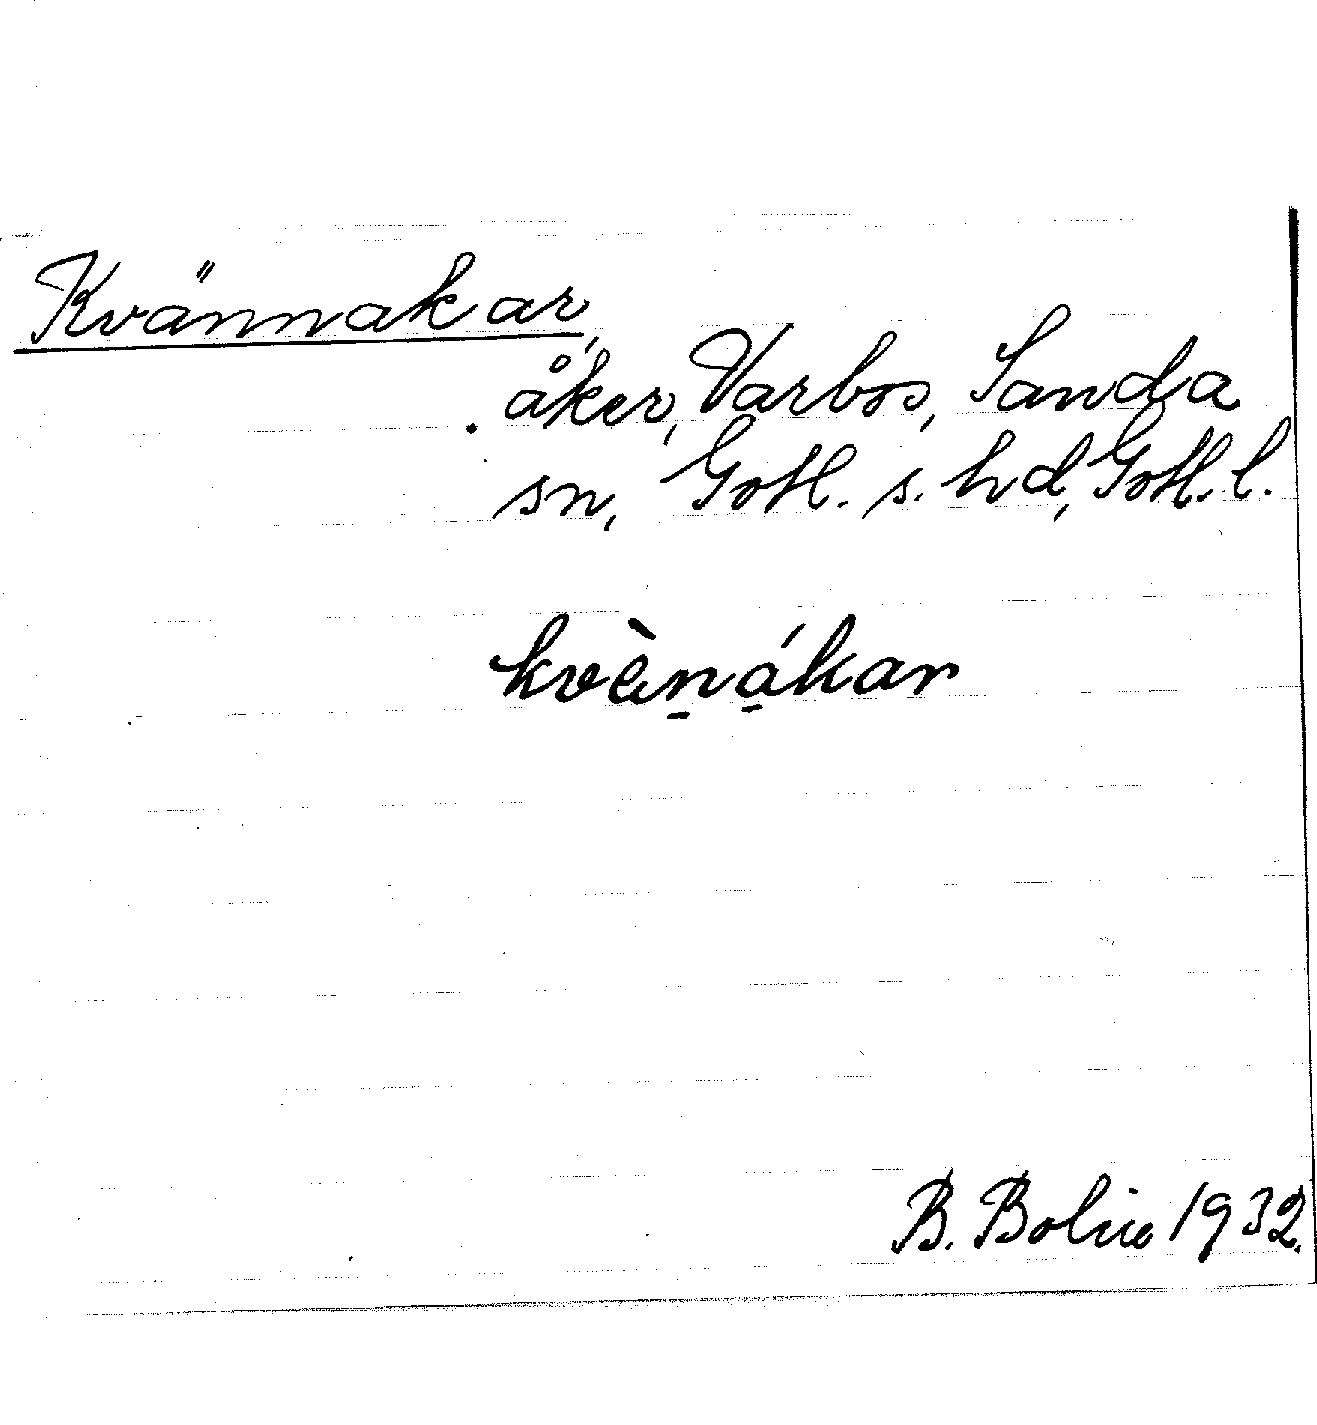 Kvännakar,
åker, Varbos, Sanda
sn, Gotl. s. hd, Gotl. l.
kvæ̀n̠á̠kar
B. Bolin 1932.